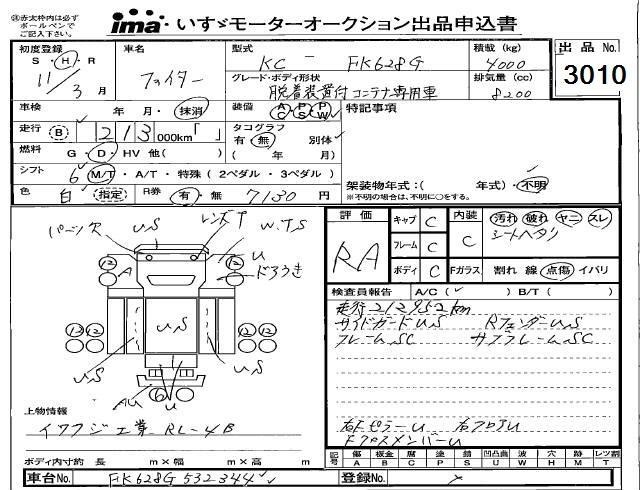 ㊟赤太枠内は必ず
ボールペンで
ご記入下さい。
ima いすゞモーターオークション出品申込書
初度登録 車名 型式 積載(kg) 出品No.
S・H・R ファイター KC- FK628G 4000 3010
11/3 月 グレード・ボディ形状 排気量(cc)
脱着装置付コンテナ専用車 8200
車検 年 月・抹消 装備 AC PS PW 特記事項
走行 B 213 000km「 」 タコグラフ
有・無 別体
燃料 G・D・HV 他( ) ( 年 月)
シフト 6 M/T・A/T・特殊(2ペダル・3ペダル)
架装物年式:( 年式)・不明
色 白 指定 R券 有・無 7130 円 ※不明の場合は、不明に○をする。
評価 RA
キャブ C 内装 C 汚れ 破れ ヤニ スレ
シートヘタリ
フレーム C
ボディ C Fガラス 割れ 線 点傷 イバリ
パーツ欠 US レンズT W.T.S
12 A U 12 ドロつき
12 12 US 12 12
US US
AU 6 U
検査員報告 A/C( ✓ ) B/T( )
走行212952km
サイドガードUS RフェンダーUS
フレームSC サブフレームSC
右ドセラーU 右フロアU
FクロスメンバーU
上物情報
イワフジ工業 RL-4B
ボディ内寸約 長 m×幅 m×高 m
記号 傷 板金 腐 塗 錆 凹凸曲 波 穴 歪 レツ割
A B C P S U W H M T
車台No. FK628G 532344 登録No.